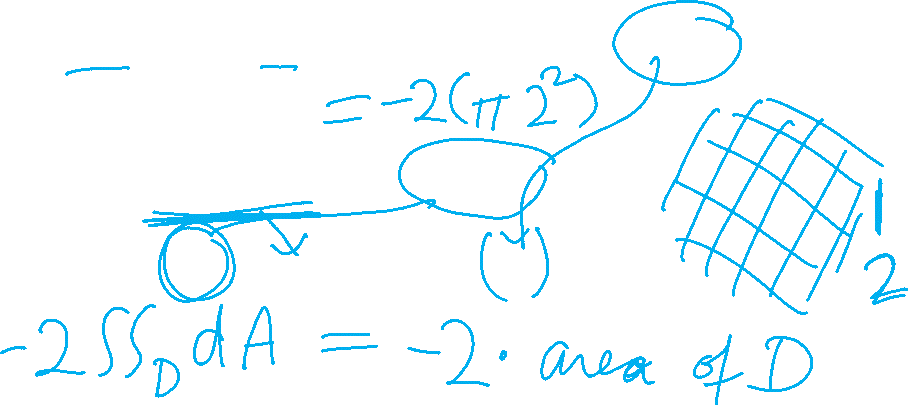 = -2(π 2²)
1
2
-2 ∬_D dA = -2 · area of D